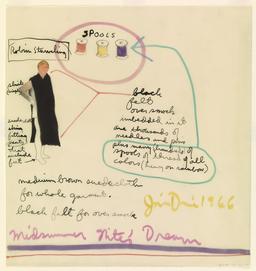 SPOOLS
Robin Starveling
black
felt
over smock
imbedded in it
are thousands of
needles and pins
plus many (hundreds of
spools of thread of all
colors (hung on rainbow)
medium brown suedecloth
for whole garment.
black felt for over smock
Jim Dine 1966
Midsummer Nite's Dream